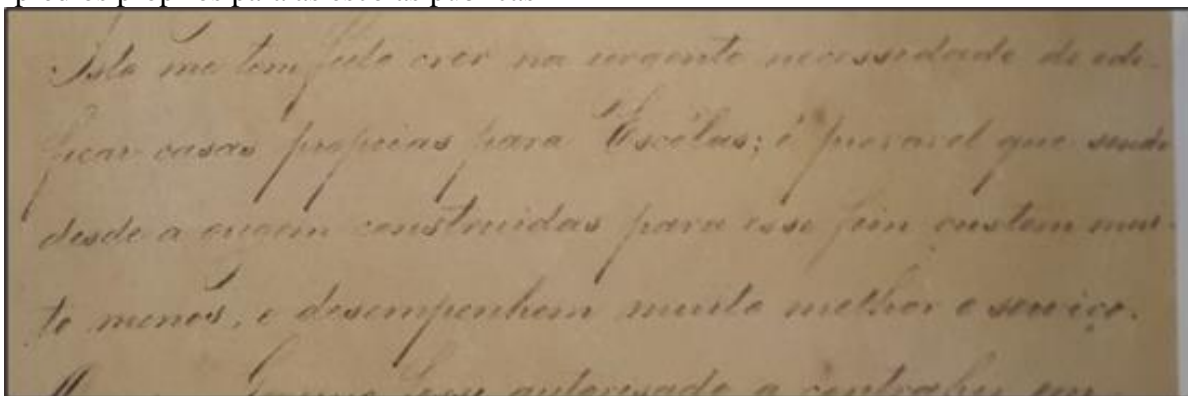 prédios próprios para as escolas públicas
Isto me tem feito crer na urgente necessidade de edi-
ficar casas proprias para Escólas; é provavel que sendo
desde a origem construidas para esse fim custem mui-
to menos, e desempenhem muito melhor o serviço.
autorisado a contrahir um